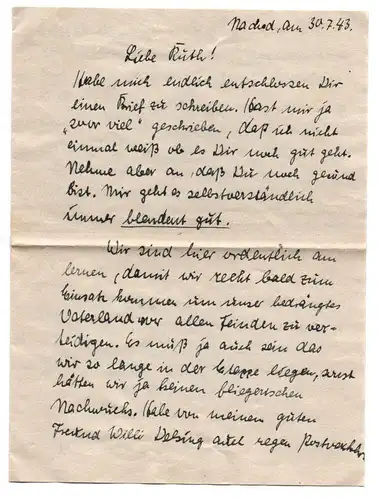 Nachod, am 30.7.43.
Liebe Ruth!
Habe mich endlich entschlossen Dir
einen Brief zu schreiben. Hast mir ja
"soor viel" geschrieben, daß ich nicht
einmal weiß ob es Dir noch gut geht.
Nehme aber an, daß Du noch gesund
bist. Mir geht es selbstverständlich
immer blendent gut.
Wir sind hier ordentlich am
lernen, damit wir recht bald zum
Einsatz kommen um unser bedrängtes
Vaterland vor allen Feinden zu ver-
teidigen. Es muß ja auch sein das
wir so lange in der Etappe liegen, sonst
hätten wir ja keinen fliegerischen
Nachwuchs. Habe von meinem guten
Freund Willi auch regen Postverkehr